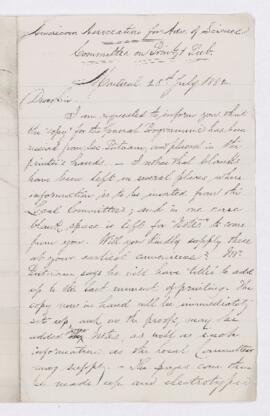 American Association for Adv. of Science
Committee on Print'g & Pub.
Montreal 25th July 1882
Dear Sir,
I am requested to inform you that
the "copy" for the general Programme has been
received from Mr Putnam, and placed in the
printer's hands. — I notice that blanks
have been left in several places where
information is to be inserted from the
Local Committee; and in one case
blank space is left for "Notes" to come
from you. Will you kindly supply these
at your earliest convenience? Mr.
Putnam says he will have little to add
up to the last moment of printing. The
copy now in hand will be immediately
set up, and on the proofs may be
added Notes, as well as such
information as the Local Committee
may supply. — The pages can then
be made up and electrotyped